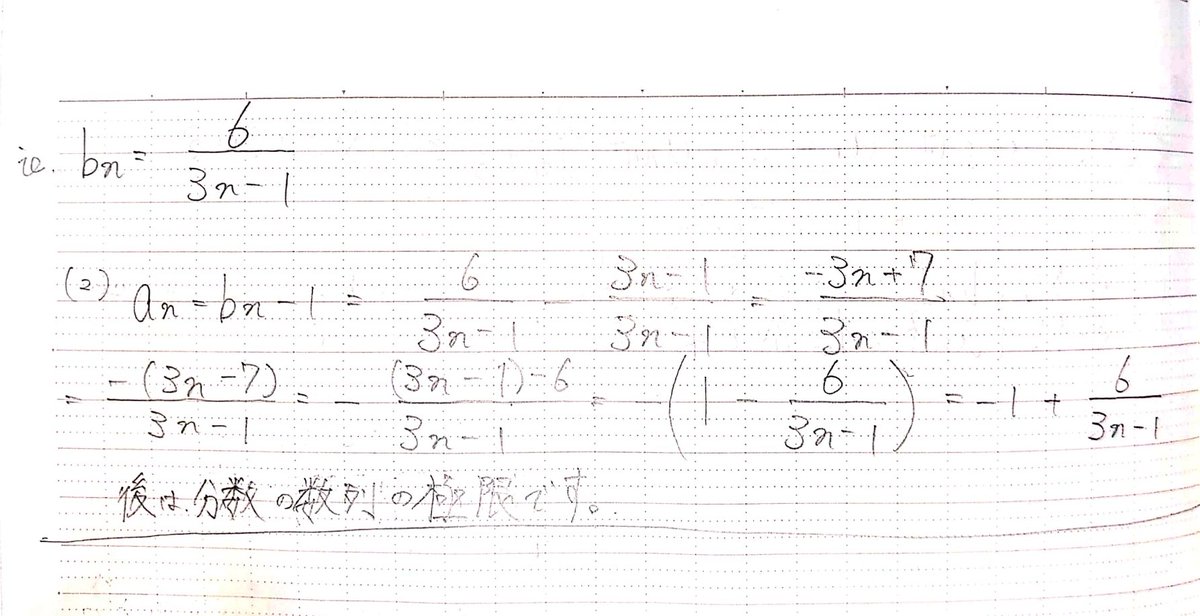 ie. bn = 6/(3n-1)
(2) an = bn - 1 = 6/(3n-1) - (3n-1)/(3n-1) = (-3n+7)/(3n-1)
= -(3n-7)/(3n-1) = - ((3n-1)-6)/(3n-1) = -(1 - 6/(3n-1)) = -1 + 6/(3n-1)
後は、分数の数列の極限です。